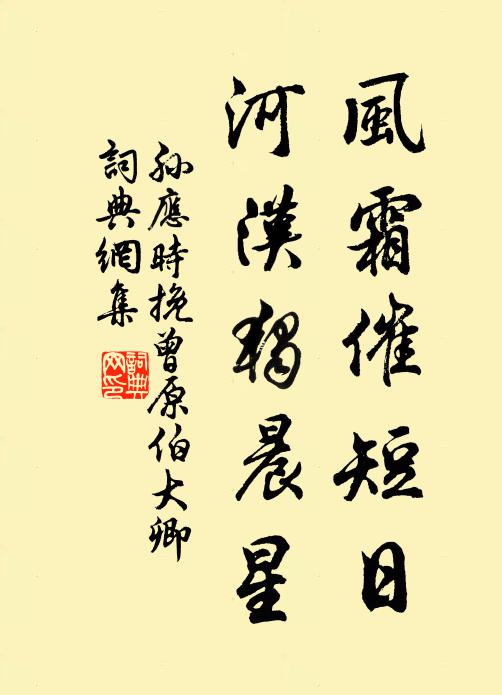 風霜催短日
河漢獨晨星
孫應時挽曾原伯大卿
詞典網集
詞典網印